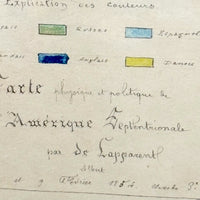 Explication des couleurs.
Russes Espagnol
Anglais Danois
Carte physique et politique de
l'Amérique Septentrionale
par de Lapparent
Albert
et 9 Février 1854